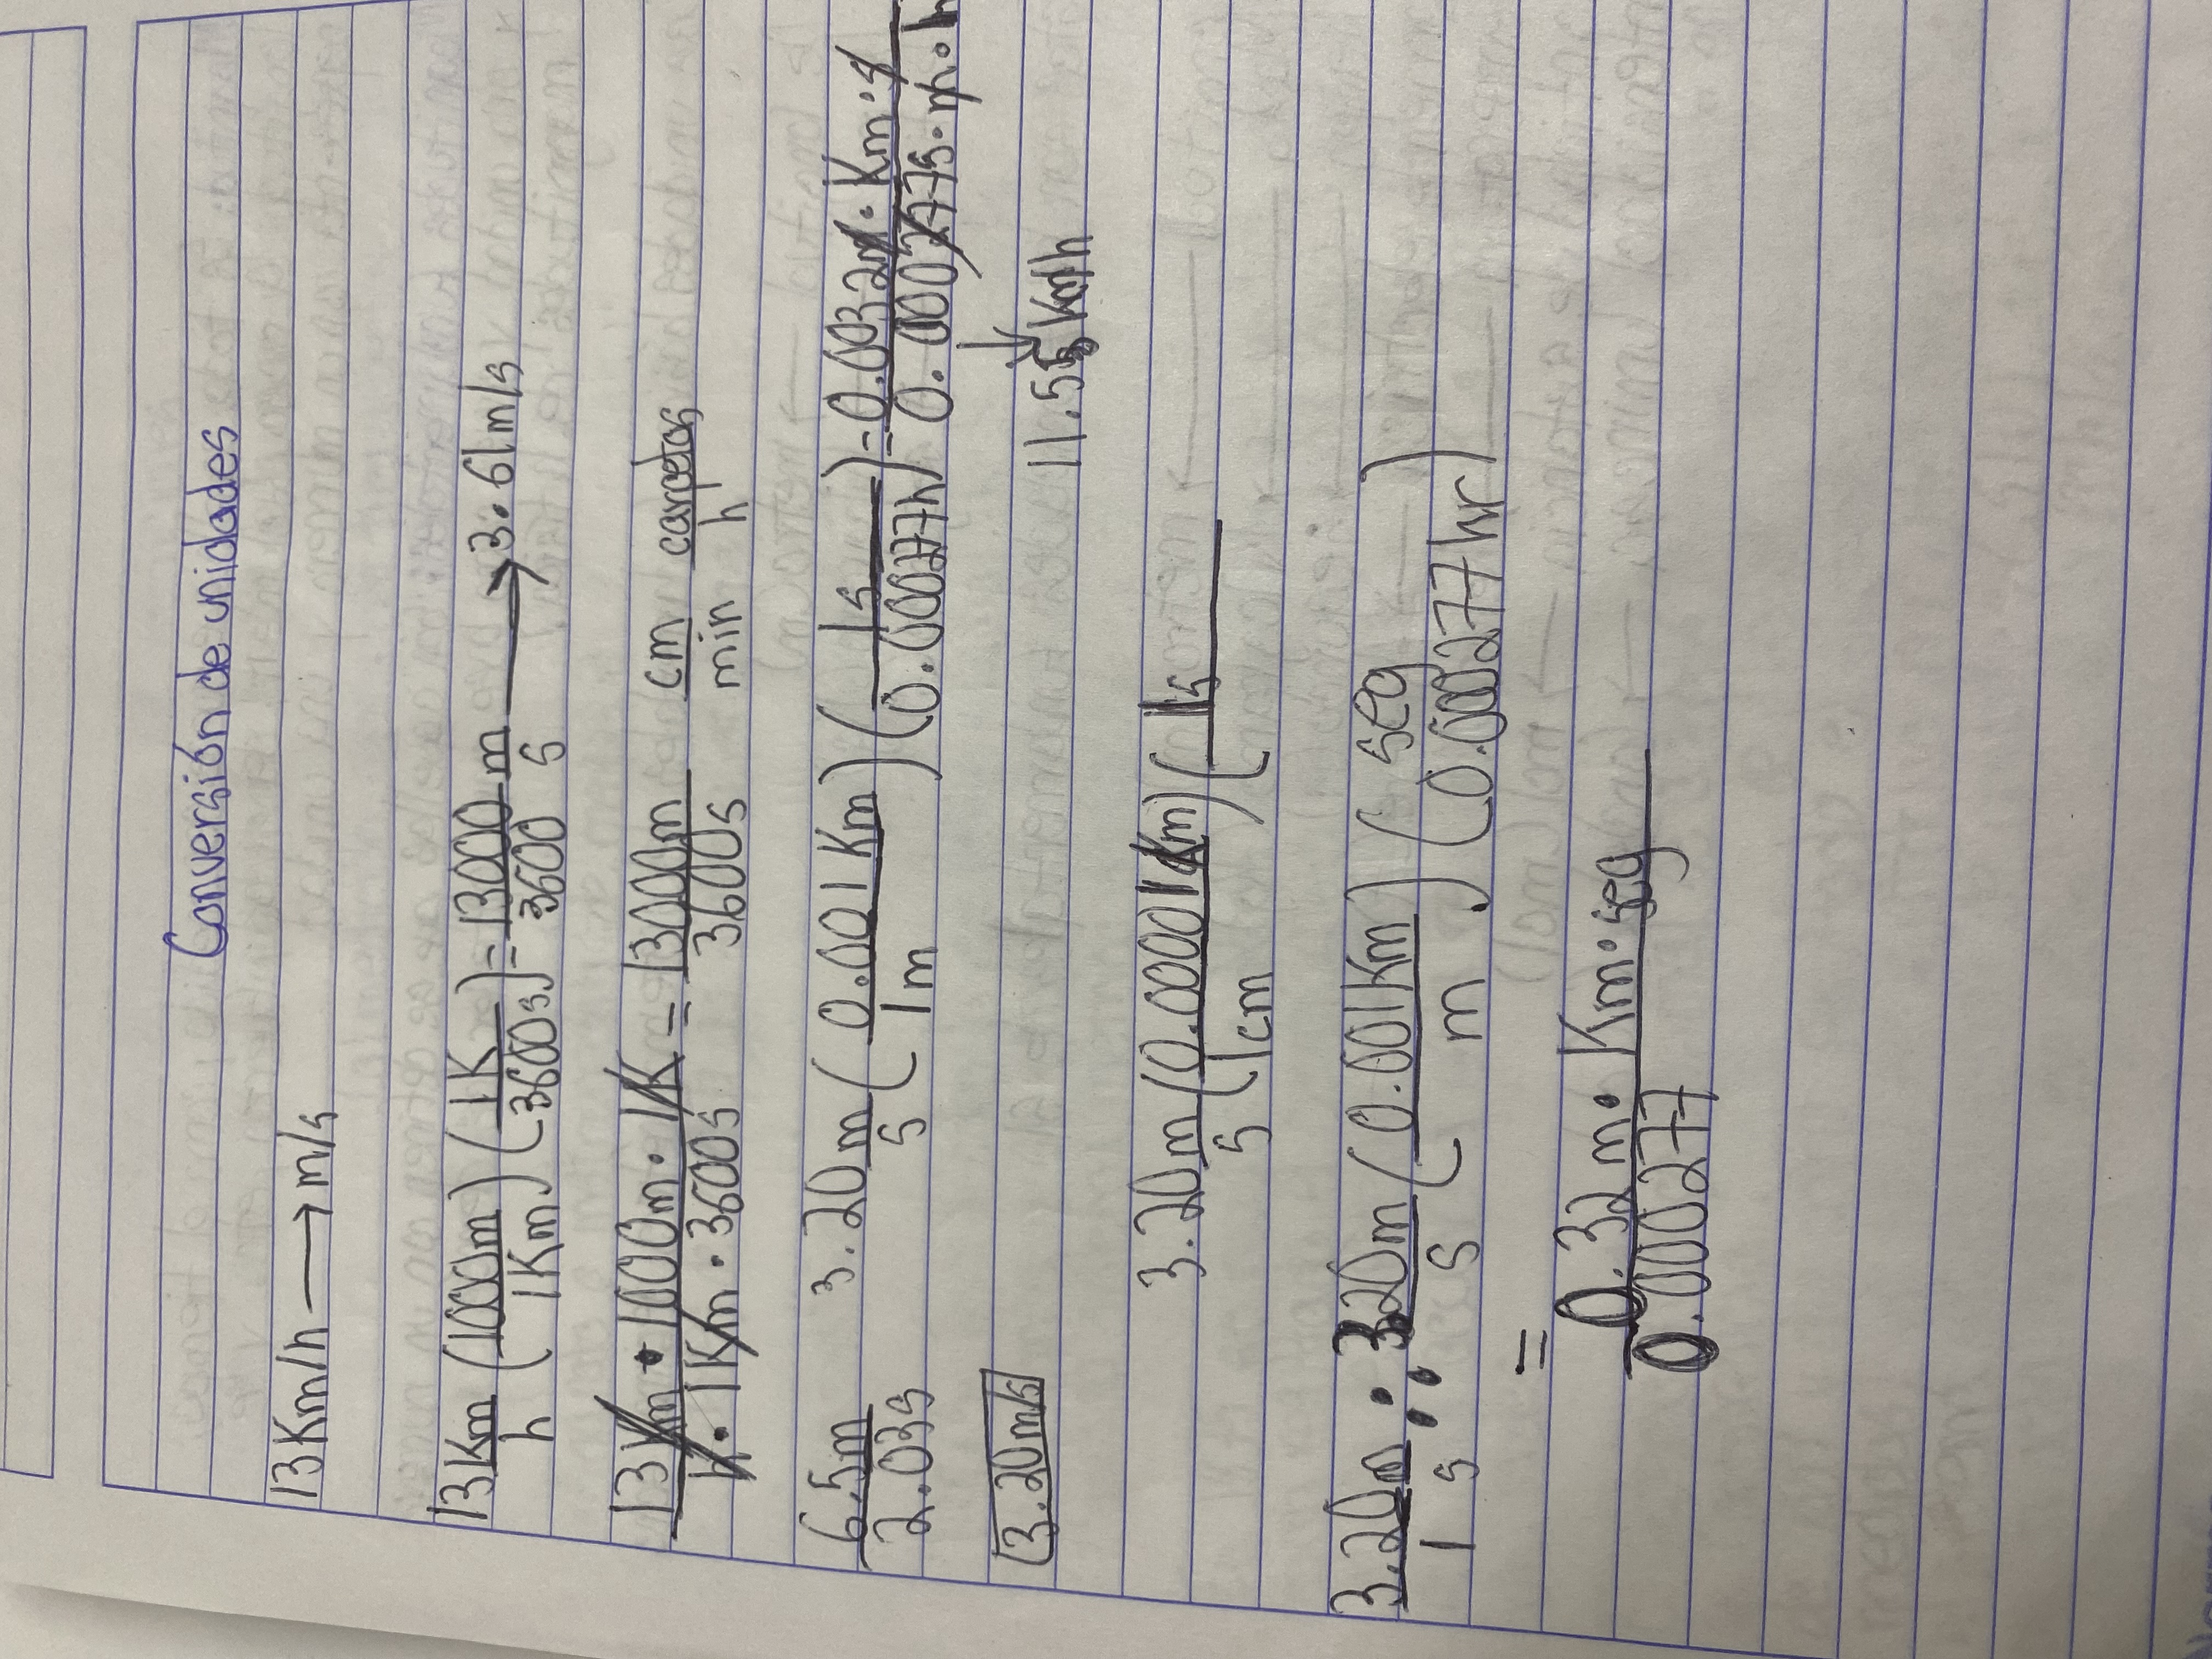 Conversión de unidades
13Km/h → m/s
13Km/h (1000m/1Km) (1K/3600s) = 13000m/3600 s → 3.61m/s
13Km • 1000m • 1K/h • 1Km • 3600s = 13000m/3600s cm/min carpetas/h
6.5m/2.03s 3.20m/s (0.001Km/1m) (1s/0.000277h) = 0.0032m • Km • s/0.0002775 • m • h
3.20m/s 11.55 Km/h
3.20m/s (0.00001Km/1cm) (1s
3.20m/1s ∴ 3.20m/s (0.001Km/m) (seg/0.000277hr)
= 0.32m • Km • seg/0.000277